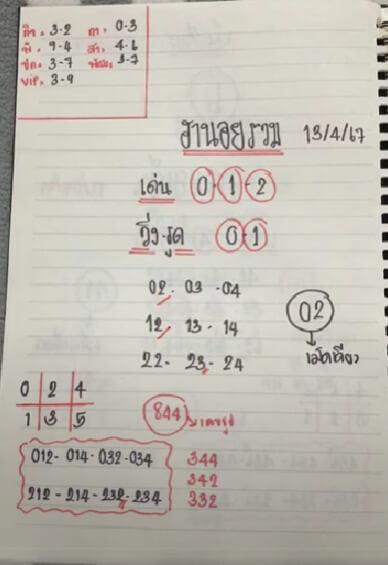 3-2 0-3
9-4 4-6
3-7 3-7
VIP. 3-9
ฮานอยรวม 13/4/67
เด่น 0-1-2
วิ่ง-รูด 0-1
02-03-04
12, 13-14 02
22-23-24 เม็ดเดียว
0 2 4
1 3 5 844
012-014-032-034 344
342
212-214-232-234 332